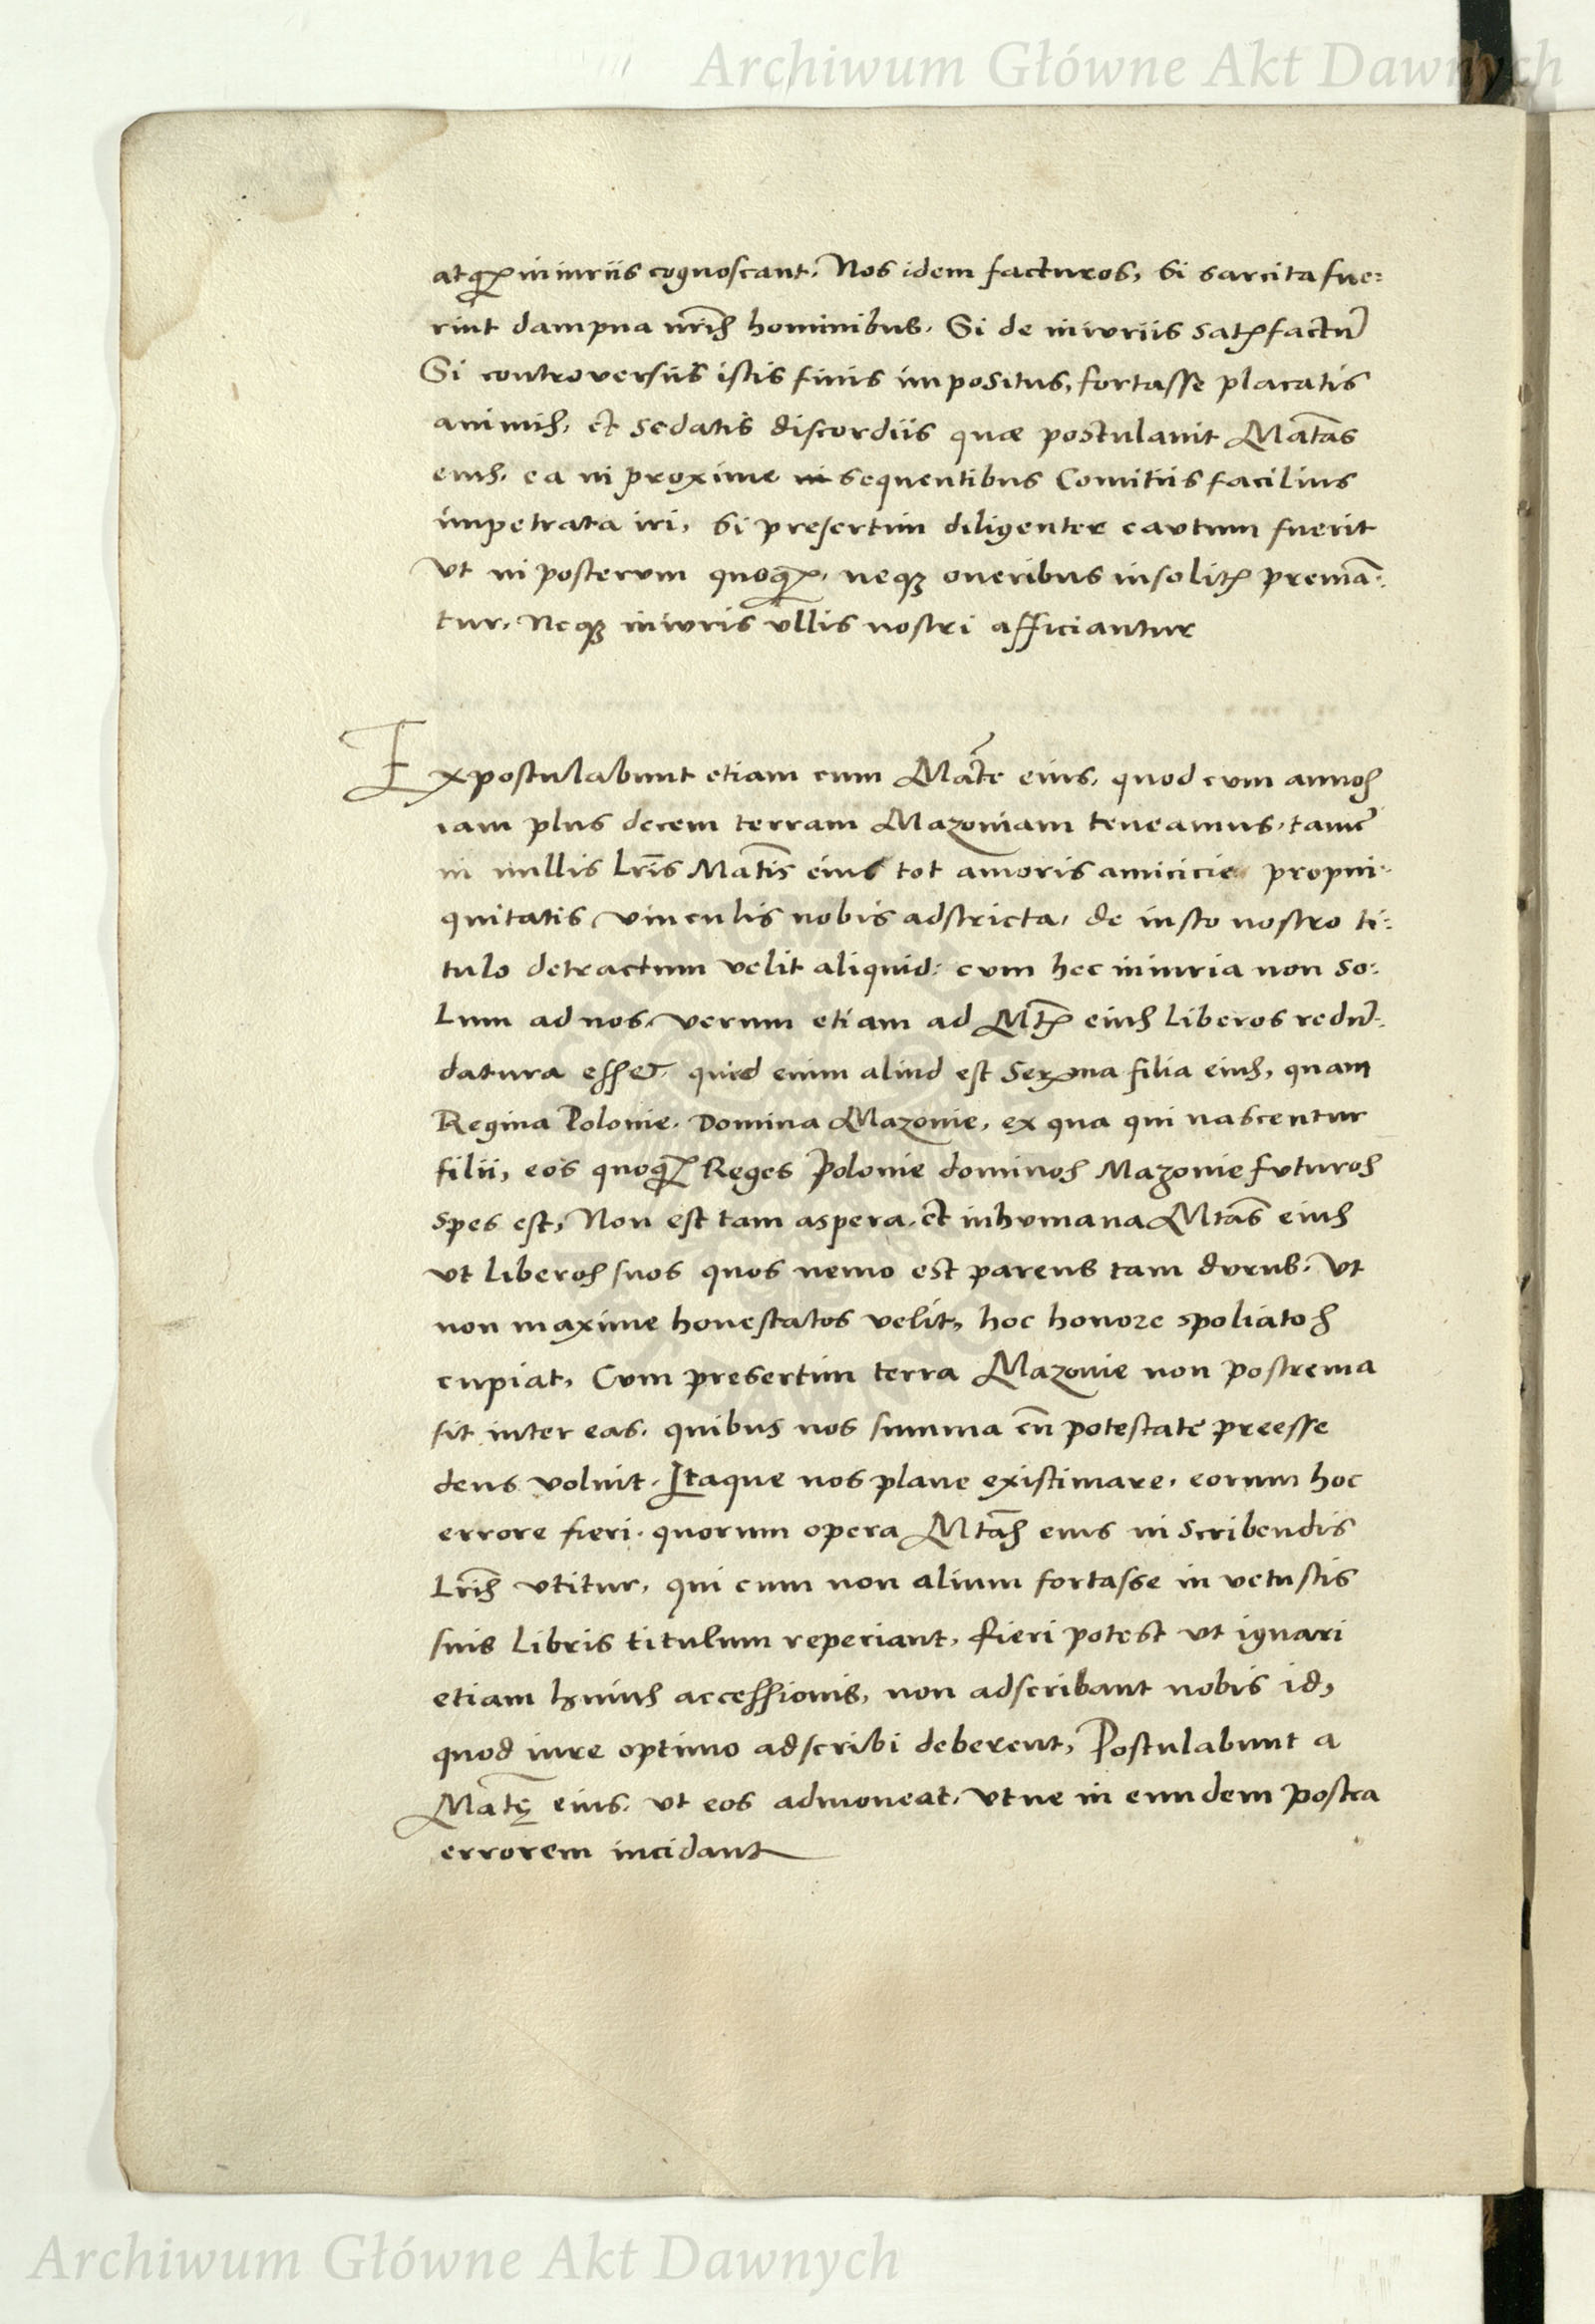 Archiwum Główne Akt Dawnych
atqꝫ iniuriis cognoscant. Nos idem facturos, si sarcita fue:
rint dampna nr̃is hominibus. Si de iniuriis satisfactũ
Si controversiis istis finis impositus, fortasse placatis
animis, et sedatis discordiis quæ postulavit Mãtas
eius. ea in proxime in sequentibus Comitiis facilius
impetrata iri, si presertim diligenter cautum fuerit
Vt in posterum quoqꝫ, neqꝫ oneribus insolitis premã:
tur. Neqꝫ iniuris vllis nostri afficiantur
Expostulabunt etiam cum Mãte eius, quod cum annos
iam plus decem terram Mazoniam teneamus, tamẽ
in nullis Lr̃is Matĩs eius tot amoris amicicie propin:
quitatis vinculis nobis adstricta, de iusto nostro ti:
tulo detractum velit aliquid: cum hec iniuria non so:
Lum ad nos, verum etiam ad Mtis eius Liberos redũ:
datura esset. quid enim aliud est Serma filia eius, quam
Regina Polonie. Domina Mazonie, ex qua qui nascentur
filii, eos quoqꝫ Reges Polonie dominos Mazonie futuros
spes est, Non est tam aspera, et inhumana Mtãs eius
vt Liberos suos quos nemo est parens tam durus. Vt
non maxime honestatos velit, hoc honore spoliatos
cupiat, Cum presertim terra Mazonie non postrema
sit inter eas. quibus nos summa cũ potestate preesse
deus voluit. Itaque nos plane existimare, eorum hoc
errore fieri. quorum opera Mtãs eius in scribendis
Lr̃is vtitur, qui cum non alium fortasse in vetustis
suis Libris titulum reperiant, fieri potest vt ignari
etiam huius accessionis, non adscribant nobis id,
quod iure optimo adscribi deberent, Postulabunt a
Matę eius. vt eos admoneat. Vt ne in eundem postea
errorem incidant
Archiwum Główne Akt Dawnych